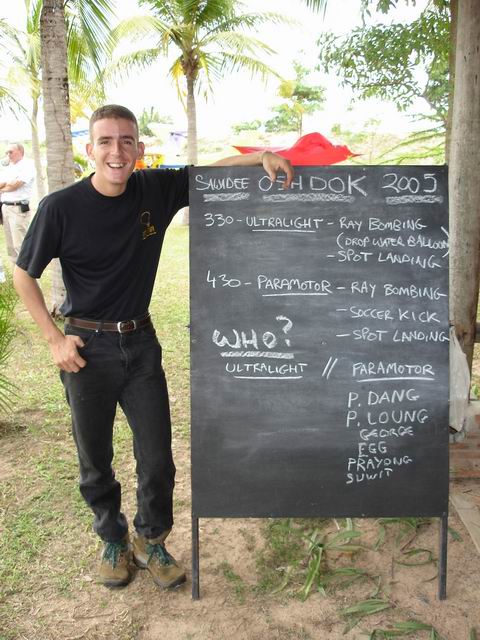 SAWDEE OSHDOK 2005
330 - ULTRALIGHT - RAY BOMBING
(DROP WATER BALLOON)
- SPOT LANDING
430 - PARAMOTOR - RAY BOMBING
- SOCCER KICK
- SPOT LANDING
WHO?
ULTRALIGHT // PARAMOTOR
P. DANG
P. LOUNG
GEORGE
EGG
PRAYONG
SUWIT